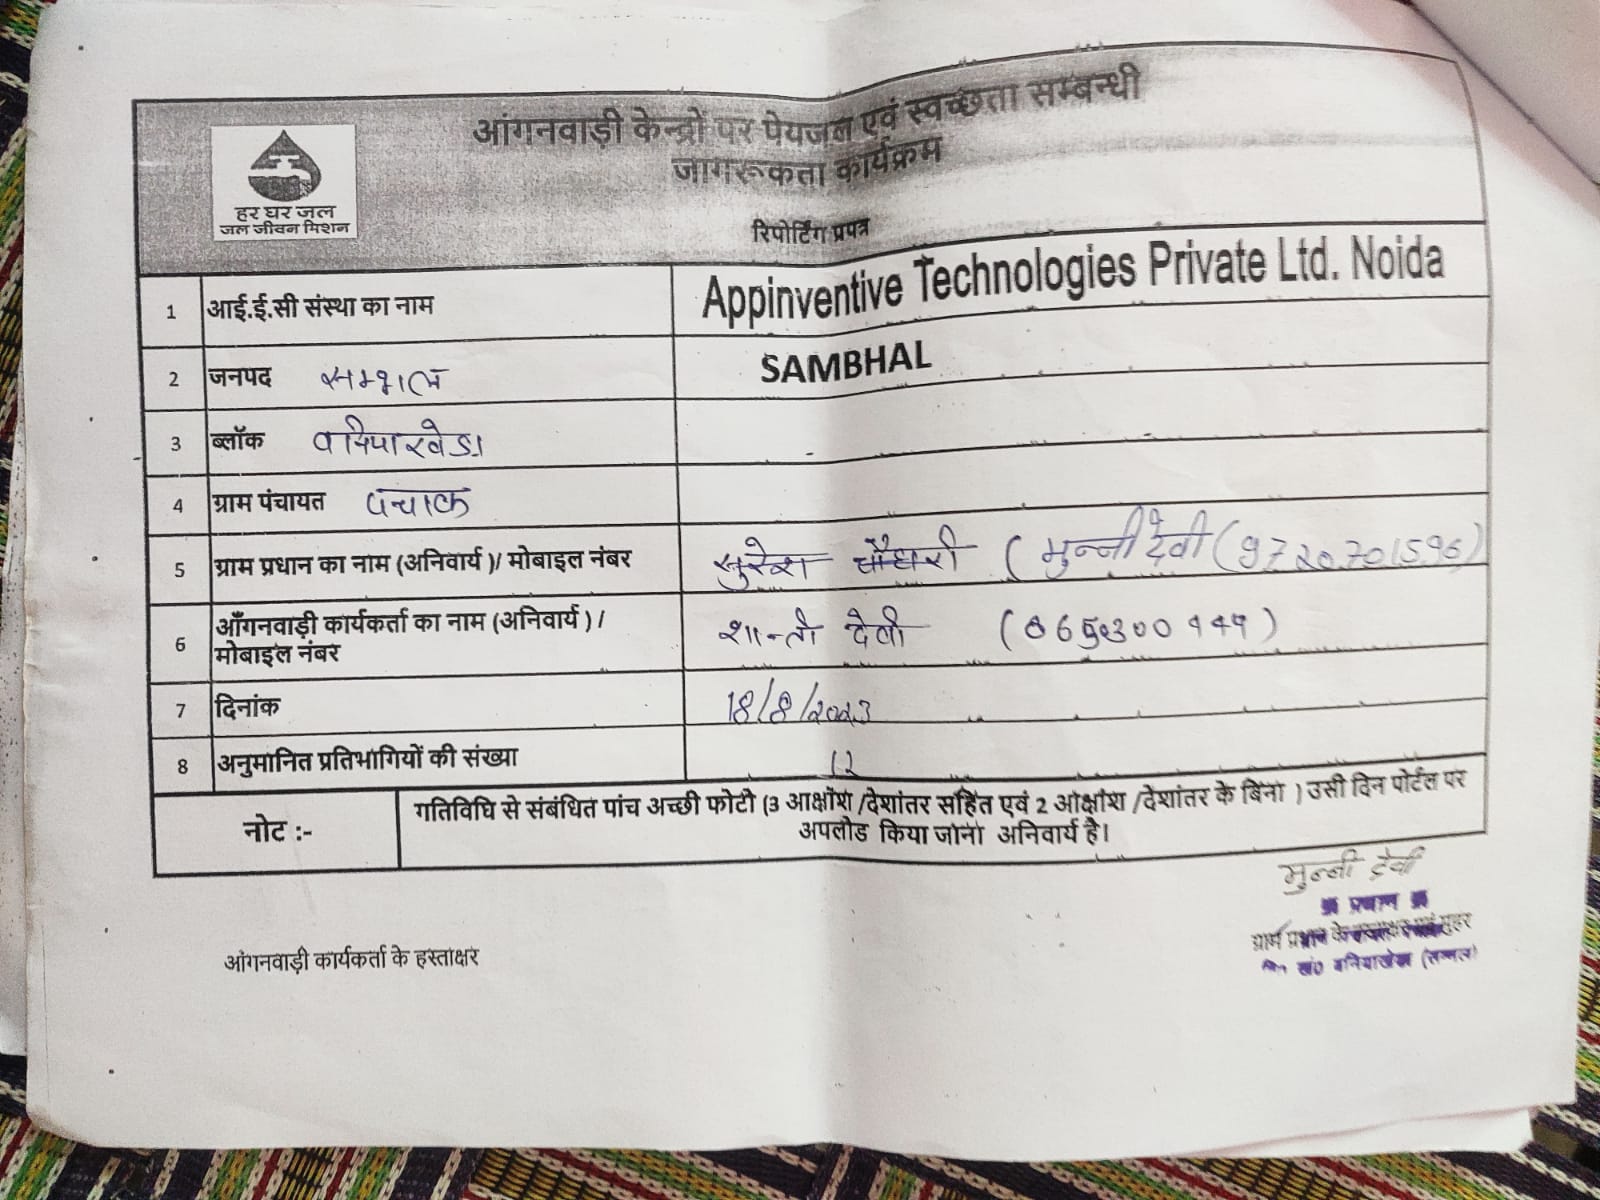 आंगनवाड़ी केन्द्रों पर पेयजल एवं स्वच्छता सम्बन्धी
जागरूकता कार्यक्रम
हर घर जल
जल जीवन मिशन
रिपोर्टिंग प्रपत्र
1 आई.ई.सी संस्था का नाम Appinventive Technologies Private Ltd. Noida
2 जनपद सम्भल SAMBHAL
3 ब्लॉक वनियाखेडा
4 ग्राम पंचायत
5 ग्राम प्रधान का नाम (अनिवार्य )/ मोबाइल नंबर सुरेश चौधरी ( मुन्नी देवी (9720701596)
6 आँगनवाड़ी कार्यकर्ता का नाम (अनिवार्य ) /
मोबाइल नंबर शान्ती देवी
7 दिनांक 18/8/2023
8 अनुमानित प्रतिभागियों की संख्या 12
नोट :- गतिविधि से संबंधित पांच अच्छी फोटो (3 आक्षांश /देशांतर सहित एवं 2 आक्षांश /देशांतर के बिना ) उसी दिन पोर्टल पर
अपलोड किया जाना अनिवार्य है।
मुन्नी देवी
प्रधान
ग्राम प्रधान के मुहर
आंगनवाड़ी कार्यकर्ता के हस्ताक्षर
खं0 बनियाखेडा (सम्भल)